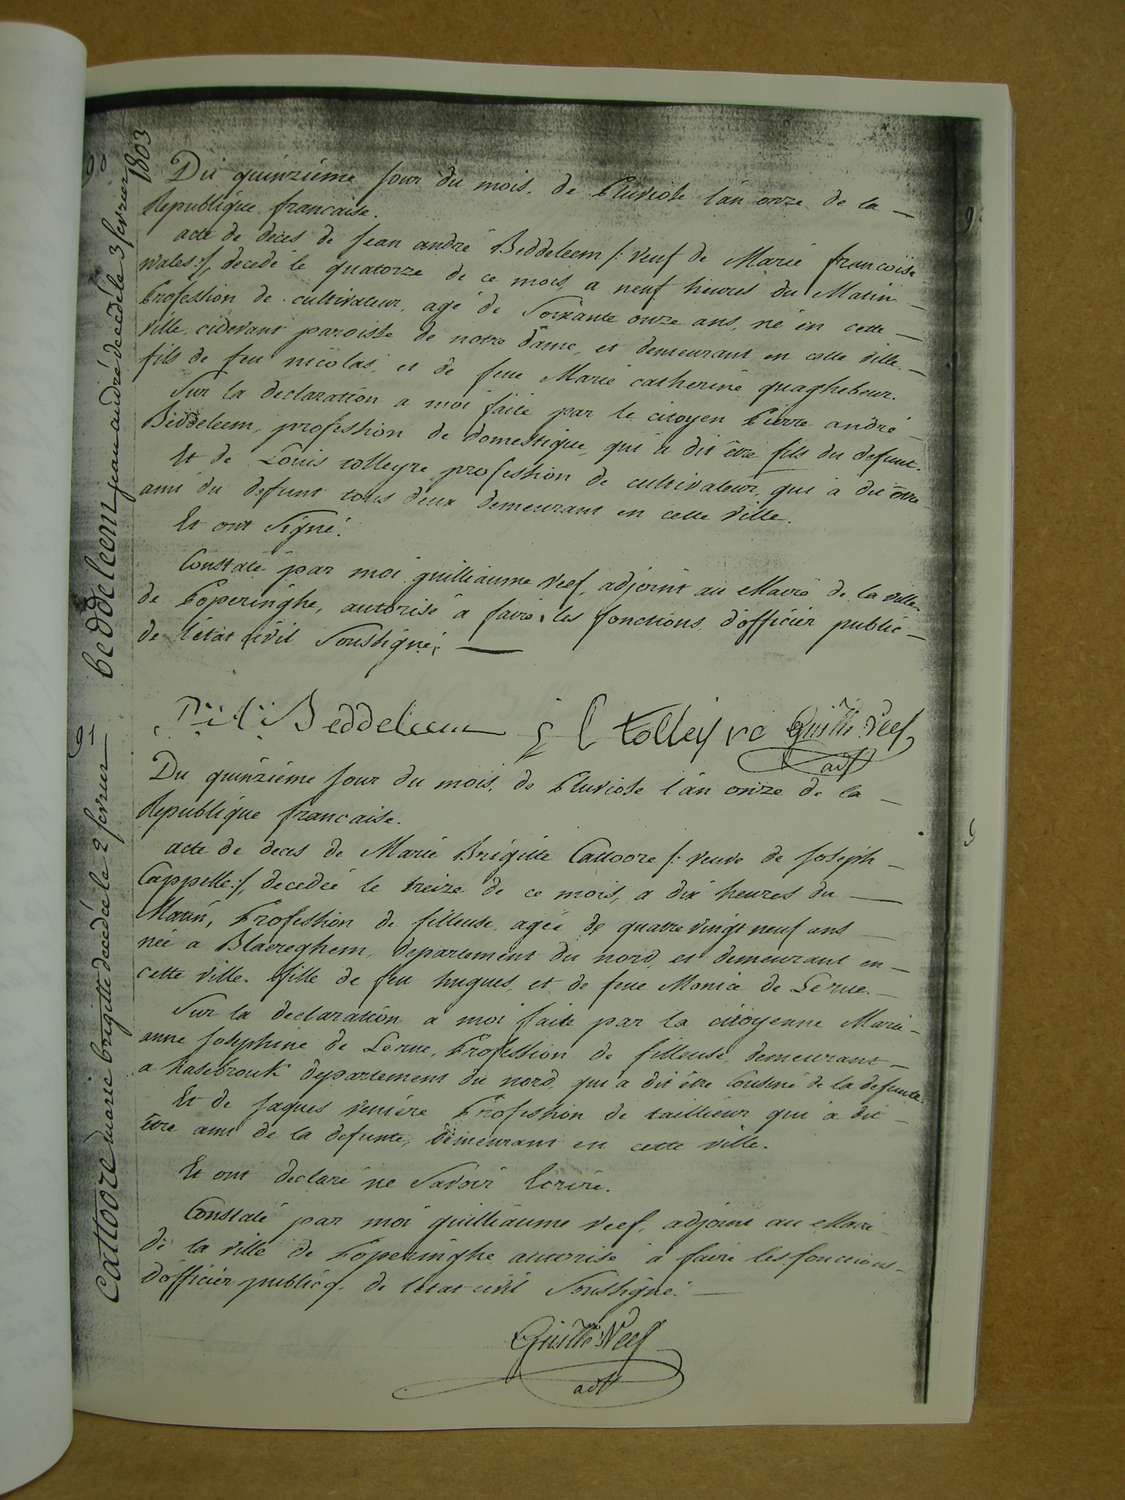 90
beddeleem jean andré decedé le 3 fevrier 1803
Du quinziéme jour du mois, de Pluviose l'an onze de la —
Republique francaise.
acte de déces de Jean andré Beddeleem /: veuf de Marie francoise
wales:/, decedé le quatorze de ce mois, a neuf heures du Matin —
Profession de cultivateur, agé de Soixante onze ans, né en cette —
ville, cidevant paroisse de notre Dame, et demeurant en cette ville. —
fils de feu nicolas, et de feue Marie catherine quaghebeur.
Sur la declaration a moi faite par le citoyen Pierre andré —
Beddeleem, profession de domestique, qui a dit être fils du defunt.
Et de Louis tolleyre profession de cultivateur, qui a dit être
ami du defunt tous deux demeurant en cette ville.
Et ont Signé.
Constaté par moi guilliaume Neef, adjoint au Maire de la ville
de Poperinghe, autorisé a faire les fonctions d'officier public —
de l'état Civil Soussigné; —
Beddeleem j l tolleyre Guille Neef
adjt
91
cattoore marie brigitte decedée le 2 fevrier
Du quinziéme jour du mois, de Pluviose l'an onze de la —
Republique francaise.
acte de deces de Marie Brigitte Cattoore /: veuve de Joseph —
Cappelle:/, decedée le treize de ce mois, a dix heures du —
Matin, Profession de filleuse, agée de quatre vingt neuf ans —
née a Blaereghem, departement du nord, et demeurant en —
cette ville. fille de feu hugues, et de feue Monica de Lerue. —
Sur la declaration a moi faite par la citoyenne Marie —
anne Josephine de Lerue, Profession de filleuse, demeurant —
a hasebrouk departement du nord, qui a dit être Cousine de la defunte
Et de Jaques Profession de tailleur qui a dit —
être ami de la defunte, demeurant en cette ville.
Et ont declaré ne Savoir Ecrire.
Constaté par moi guilliaume Neef, adjoint au Maire
de la ville de Poperinghe autorisé a faire les fonctions —
d'officier public de l'état civil Soussigné. —
Guille Neef
adjt